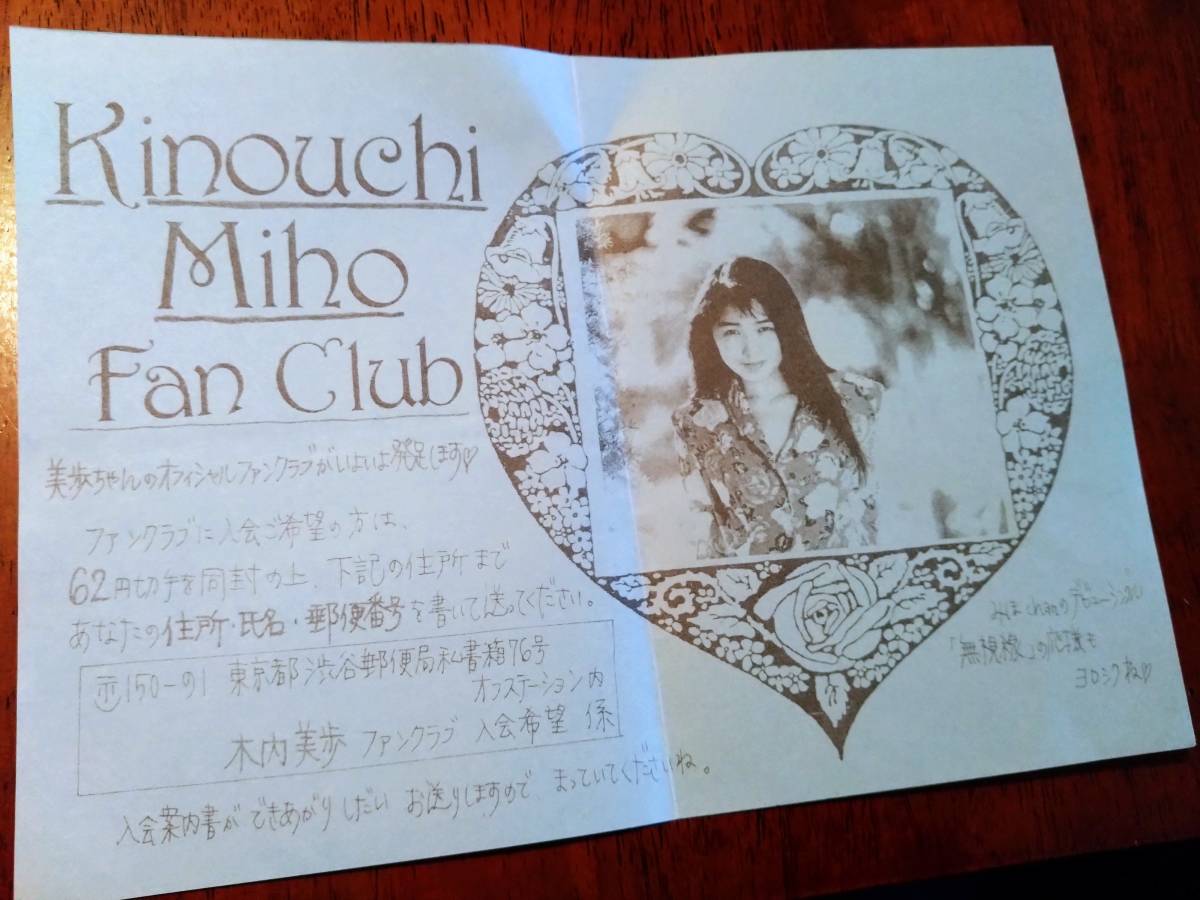 Kinouchi
Miho
Fan Club
美歩ちゃんのオフィシャルファンクラブがいよいよ発足します♡
ファンクラブに入会ご希望の方は、
62円切手を同封の上、下記の住所まで
あなたの住所・氏名・郵便番号を書いて送ってください。
〒150-91 東京都渋谷郵便局私書箱76号
オフステーション内
木内美歩 ファンクラブ 入会希望 係
入会案内書ができあがりしだい お送りしますので、まっていてくださいね。
みほchanのデビューシングル
「無視線」の応援も
ヨロシクね♡